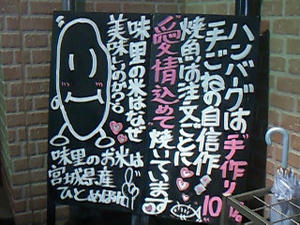 ハンバーグは手作り
手ごねの自信作
焼魚は注文ごとに
愛情込めて焼いています
味里の米はなぜ
美味しいのかって
味里のお米は
宮城県産
ひとめぼれ